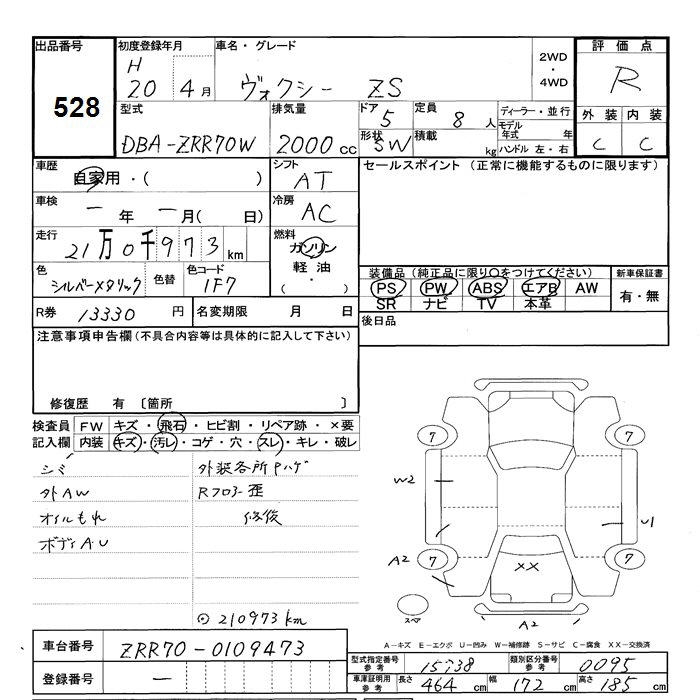 出品番号
528
初度登録年月
H 20 4月
車名・グレード
ヴォクシー ZS
2WD・4WD
評価点
R
外装 内装
C C
型式
DBA-ZRR70W
排気量
2000cc
ドア
5
形状
5W
定員
8人
積載
kg
ディーラー・並行
モデル年式 年
ハンドル 左・右
車歴
自家用・( )
シフト
AT
車検
一年一月( 日)
冷房
AC
走行
21万0千973km
燃料
ガソリン
軽油
・( )
色
シルバーメタリック
色替
色コード
1F7
セールスポイント (正常に機能するものに限ります)
装備品(純正品に限り○をつけてください)
PS PW ABS エアB AW
SR ナビ TV 本革
新車保証書
有・無
R券
13330円
名変期限 月 日
後日品
注意事項申告欄(不具合内容等は具体的に記入して下さい)
修復歴 有 〔箇所 〕
検査員記入欄
FW キズ・飛石・ヒビ割・リペア跡・×要
内装 キズ・汚レ・コゲ・穴・スレ・キレ・破レ
シミ
外AW
オイルもれ
ボディA.U
外装各所Pハゲ
Rフロアー歪
修後
210973km
7
7
7
7
W2
A2
U1
××
A2
スペア
A-キズ E-エクボ U-凹み W-補修跡 S-サビ C-腐食 XX-交換済
車台番号
ZRR70-0109473
登録番号
一
型式指定番号 参考
15738
類別区分番号 参考
0095
車庫証明用 参考
長さ 464cm
幅 172cm
高さ 185cm